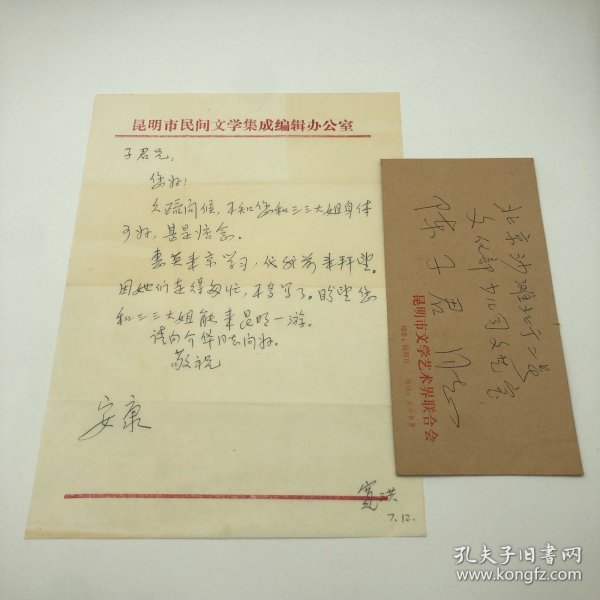 昆明市民间文学集成编辑办公室
子君兄:
您好!
久疏问候,不知您和三三大姐身体
可好,甚是惦念。
惠英来京学习,代我前来拜望。
因她们走得匆忙,不多写了。盼望您
和三三大姐能来昆明一游。
请向介华同志问好。
敬祝
安康
宽洪
7.12.
北京沙滩北街二号
文化部 文艺室
陈子君 同志
昆明市文学艺术界联合会
孔夫子旧书网
www.kongfz.com